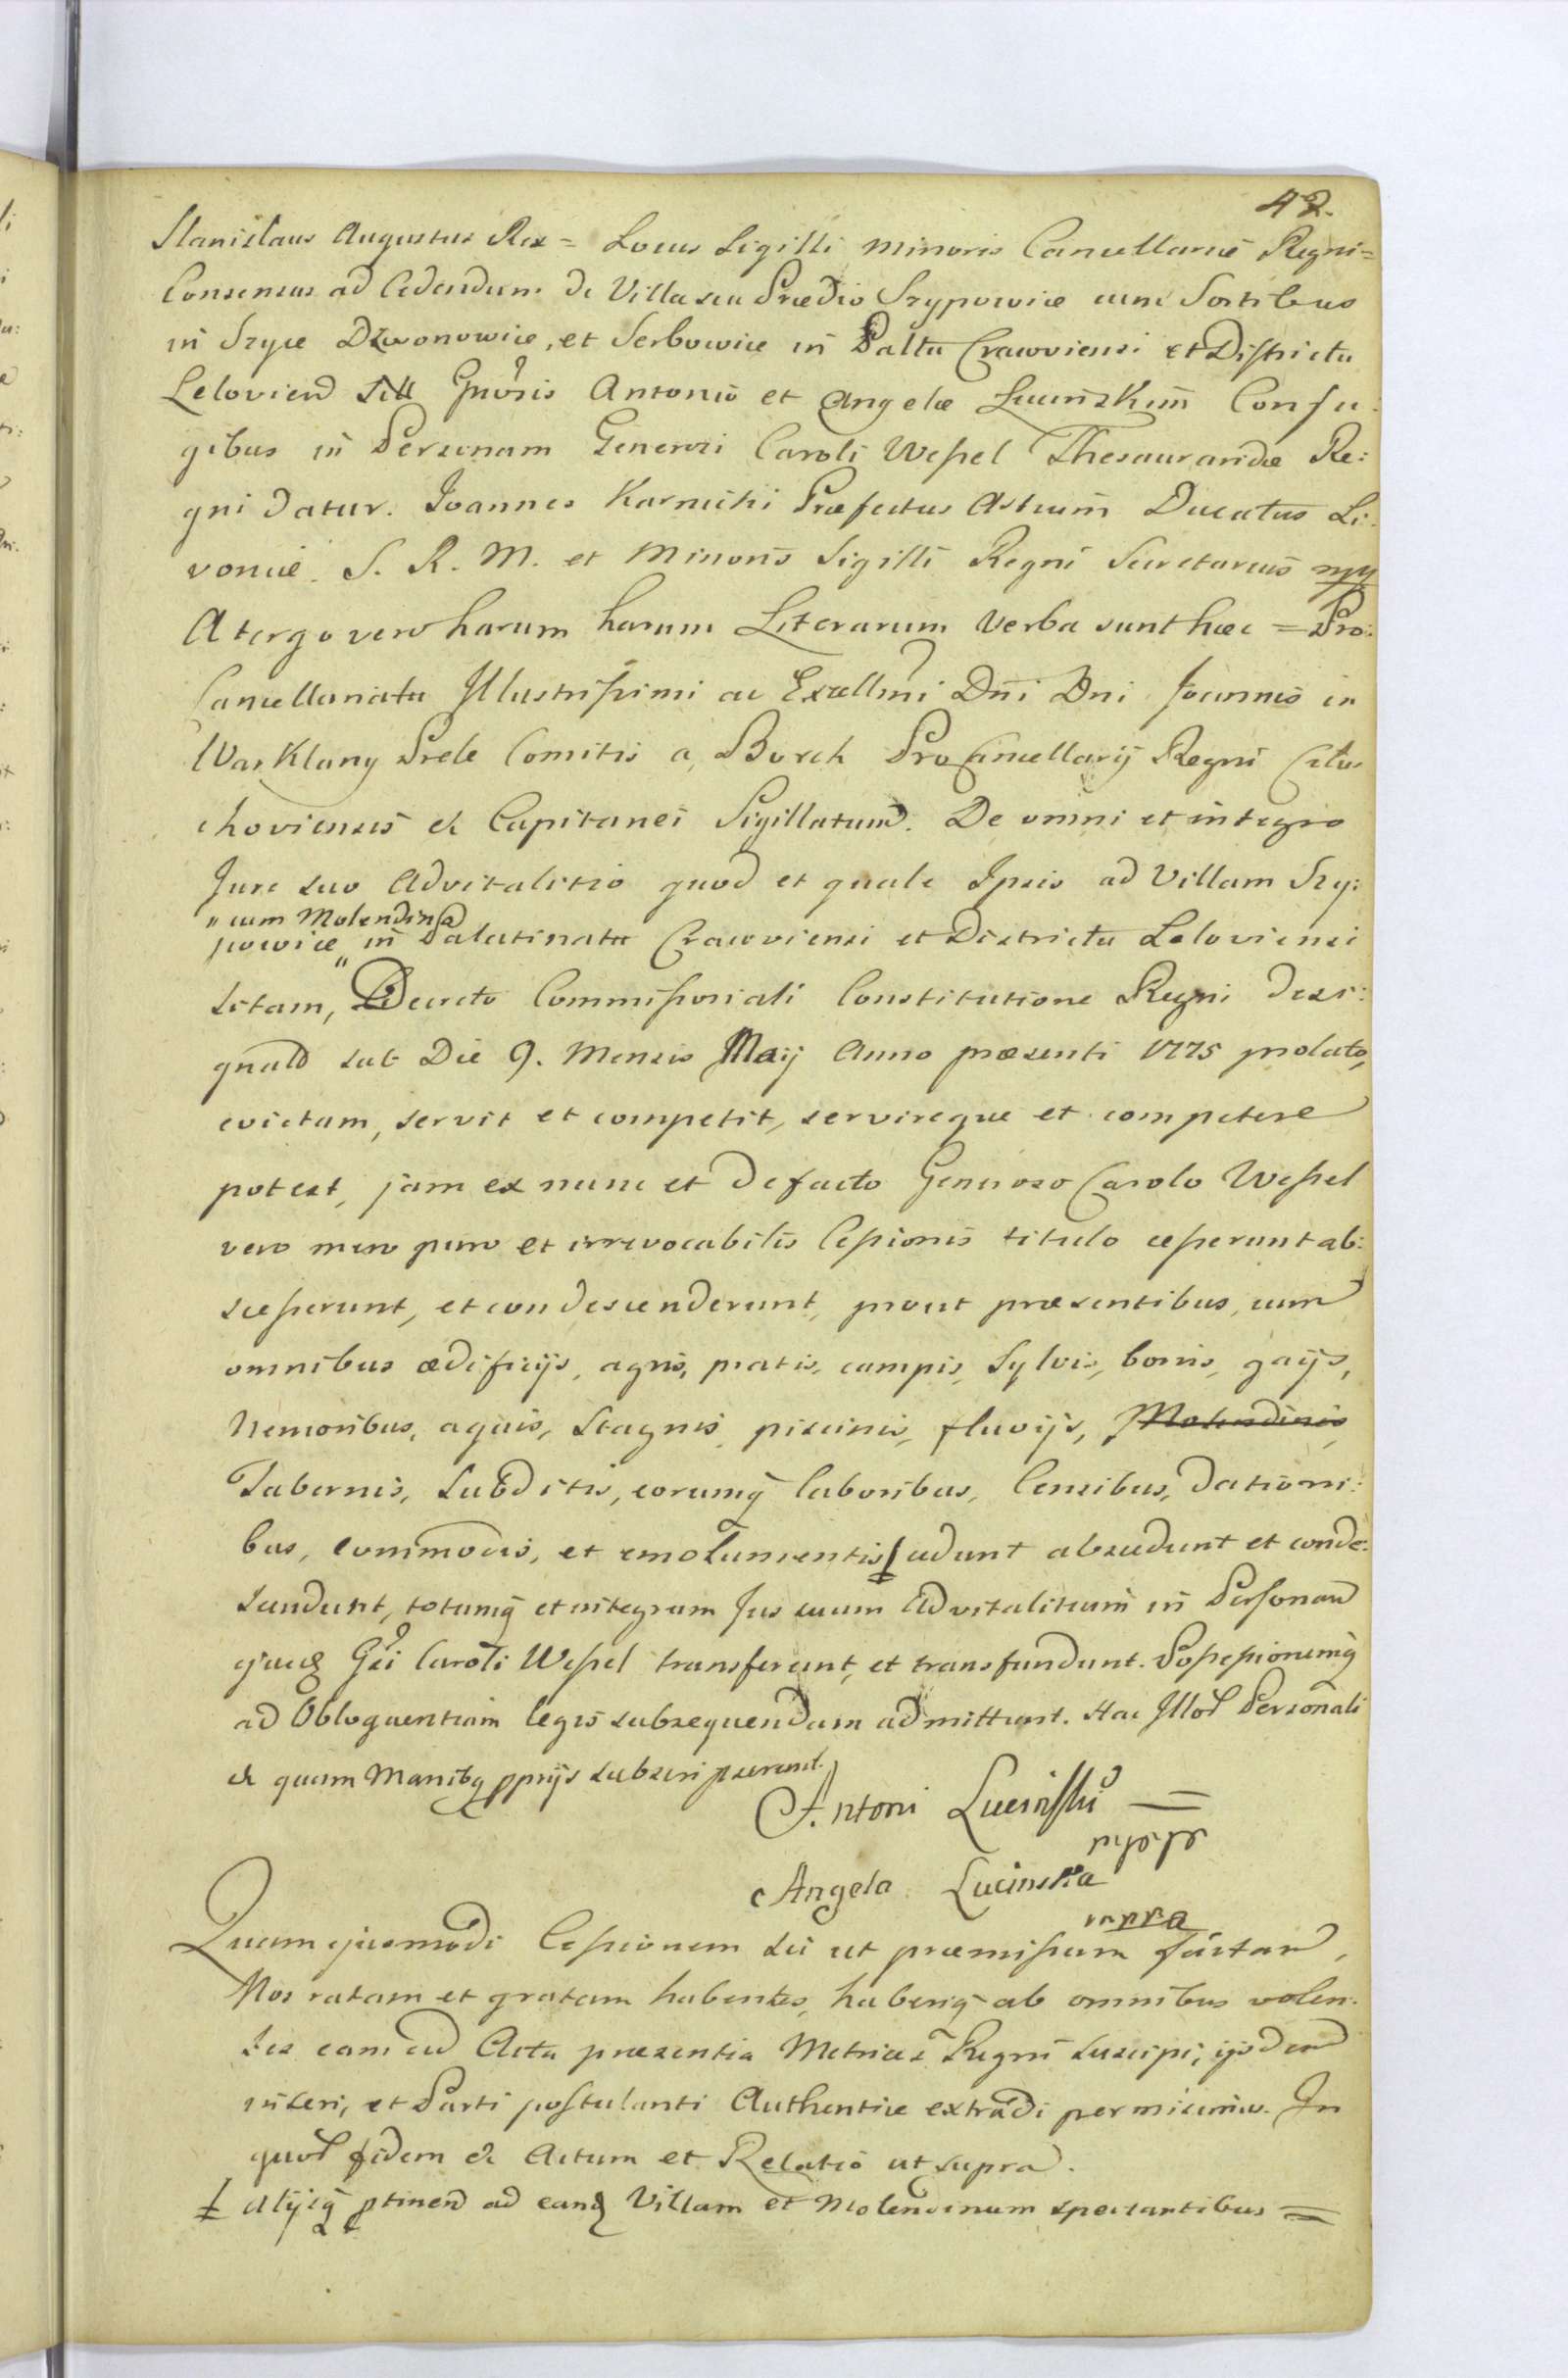 42.
Stanislaus Augustus Rex = Locus Sigilli minoris Cancellariæ Regni =
Consensus ad Cedendum de Villa seu Prædio Szypowice cum Sortibus
in Szyce Dzwonowice, et Serbowice in Palttu Cracoviensi et Districtu
Leloviend Gnosis Antonio et Angelæ Lucinskim Conju:
gibus in Personam Generosi Caroli Wessel Thesauraridæ Re:
gni Datur. Joannes Karnicki Præfectus Astuum Ducatus Li:
voniæ. S. R. M. et Minoris Sigilli Regni Secretarius mp
A tergo vero harum harum Literarum Verba sunt hæc = Pro:
Cancellariatu Illustrissimi ac Excellmi Dni Dni Joannis in
Warklany Prele Comitis a Borch Pro Cancellarij Regni
choviensis & Capitanei Sigillatum. De omni et integro
Jure suo Advitalitio quod et quale Ipsis ad Villam Szy:
" cum Molendino
powice " in Palatinatu Cracoviensi et Districtu Leloviensi
sitam, Decreto Commissoriali Constitutione Regni desi:
gnato sub Die 9. Mensis Maij Anno præsenti 1775 prolato,
evictam, servit et competit, servireque et competere
potest, jam ex nunc et de facto Generoso Carolo Wessel
vero mero puro et irrevocabilis Cessionis titulo cesserunt ab:
scesserunt, et condescenderunt, prout præsentibus, cum
omnibus ædificijs, agris, pratis, campis, Sylvis, boris, gaijs,
Nemoribus, aquis, Stagnis, piscinis, fluvijs, Molendinis,
Tabernis, Subditis, eorumq laboribus, Censibus, dationi:
bus, commodis, et emolumentis ƚ cedunt abscedunt et conde:
scendunt, totumq et integrum Jus suum Advitalitium in Personam
ejusd Gsi Caroli Wessel transferunt, et transfundunt. Possessionemq
ad Obloquentiam legis subsequendam admittunt. Hac Illor Personali
& quam Manibq ppriis subscripserunt.
Antoni Lucinski =
mppr
Angela Lucinska
mppra
Quam ejusmodi Cessionem sic ut præmissum factam,
Nos ratam et gratam habentes, haberiq ab omnibus volen:
tes eam ad Acta præsentia Metrices Regni suscipi, ijsdem
inseri, et Parti postulanti Authentice extradi permisimus. In
quor fidem & Actum et Relatio ut supra.
ƚ Alijsq ptinen ad eand Villam et Molendinum spectantibus =